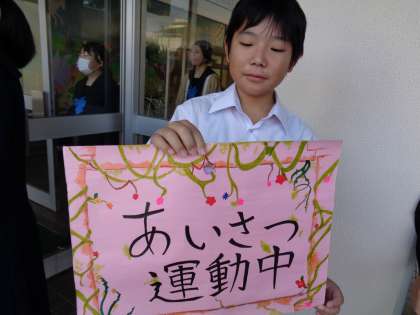 あいさつ
運動中